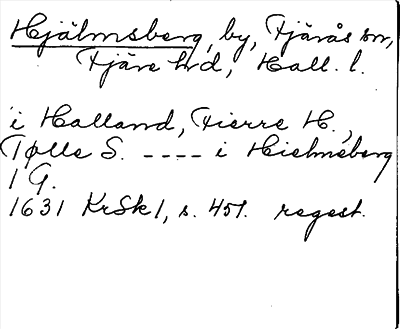 Hjälmsberg, by, Fjärås sn,
Fjäre hrd, Hall. l.
i Halland, Fierre H.,
Tølle S. ---- i Hielmsberg
1 G.
1631 KrSk1, s. 451. regest.